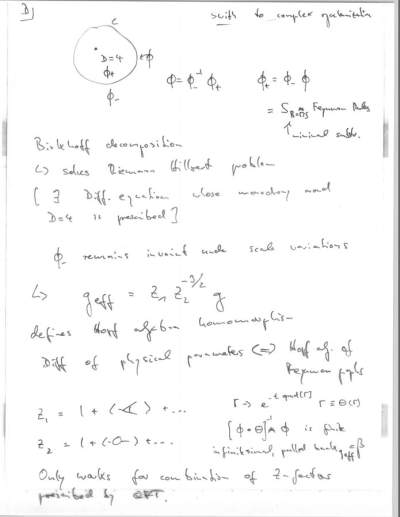 D)
switch to complex
C
D=4
φ+
φ
φ-
φ = φ-^{-1} φ+
φ+ = φ- φ
= S Feynman Rules
↑ minimal subtr.
Birkhoff decomposition
↳ solves Riemann Hilbert problem
[ ∃ Diff. equation whose monodromy around
D=4 is prescribed ]
φ- remains invariant under scale variations
↳ g_eff = Z_1 Z_2^{-3/2} g
defines Hopf algebra homomorphism
Diff of physical parameters <=> Hopf alg. of
Feynman graphs
Z_1 = 1 + ( ) + ...
Γ → e^{-t grad(Γ)} Γ ≡ Θ(Γ)
Z_2 = 1 + (-O-) + ...
φ is finite
infinitesimal, pulled back = β
Only works for combination of Z-factors
prescribed by QFT.